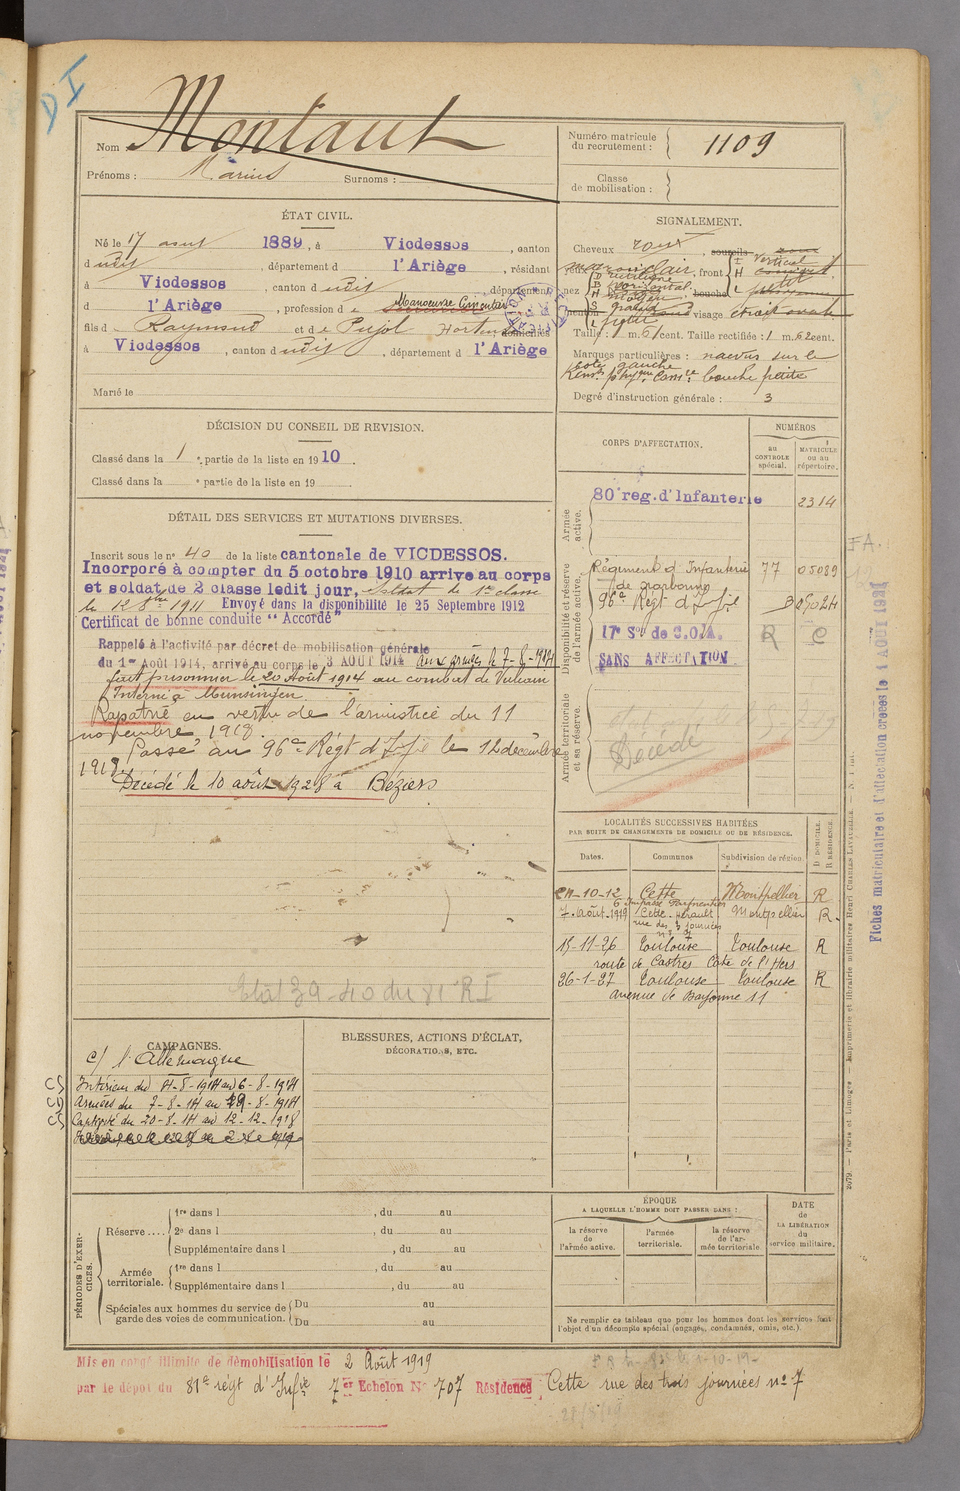 D I
Nom : Montaut
Prénoms : Marius Surnoms :
Numéro matricule du recrutement : 1109
Classe de mobilisation :
ÉTAT CIVIL.
Né le 17 août 1889, à Vicdessos, canton
dudit, département d l'Ariège, résidant
à Vicdessos, canton dudit, département
d l'Ariège, profession de Manoeuvre Cimentier
fils de Raymond et de Pujol Hortense domiciliés
à Vicdessos, canton dudit, département d l'Ariège
Marié le
SIGNALEMENT.
Cheveux roux, sourcils
yeux marron clair, front I vertical H
nez D rectiligne B horizontal H moyen bouche L petit
menton S grande L petite visage étroit ovale
Taille : 1 m. 61 cent. Taille rectifiée : 1 m. 62 cent.
Marques particulières : naevus sur le
coté gauche
Rens. phyque Comre : bouche petite
Degré d'instruction générale : 3
DÉCISION DU CONSEIL DE REVISION.
Classé dans la 1e partie de la liste en 1910.
Classé dans la e partie de la liste en 19
DÉTAIL DES SERVICES ET MUTATIONS DIVERSES.
Inscrit sous le no 40 de la liste cantonale de VICDESSOS.
Incorporé à compter du 5 octobre 1910 arrive au corps
et soldat de 2 classe ledit jour, soldat de 1re classe
le 12 8bre 1911 Envoyé dans la disponibilité le 25 Septembre 1912
Certificat de bonne conduite "Accordé"
Rappelé à l'activité par décret de mobilisation générale
du 1er Août 1914, arrivé au corps le 3 AOUT 1914 aux armées le 7-8-1914
fait prisonnier le 20 Août 1914 au combat de Vulcain
Interné à Munsingen
Rapatrié en vertu de l'armistice du 11
novembre 1918.
Passé au 96e Régt d'Infie le 12 décembre
1918.
Décédé le 10 août 1928 à Béziers
Etat 39-40 du 81 R I
CORPS D'AFFECTATION.
NUMÉROS
au CONTROLE spécial.
MATRICULE ou au répertoire.
Armée active.
80 reg. d'Infanterie 2314
Disponibilité et réserve de l'armée active.
Régiment d'Infanterie 77 05089
de Narbonne
96e Régt d'Infie
17e Son de C.O.A. R C
SANS AFFECTATION
Armée territoriale et sa réserve.
Décédé
FA.
Fiches matriculaire et d'affectation créées le 1 AOUT 1921
LOCALITÉS SUCCESSIVES HABITÉES
PAR SUITE DE CHANGEMENTS DE DOMICILE OU DE RÉSIDENCE.
Dates. Communes Subdivision de région D DOMICILE. R RÉSIDENCE.
-10-12 Cette Montpellier R
6 Impasse
7 Août 1919 Cette Hérault Montpellier R.
rue des 3 journées
no 7
15-11-26 Toulouse Toulouse R
route de Castres Côte de l'Hers
26-1-27 Toulouse Toulouse R
avenue de Bayonne 11
CAMPAGNES.
c/ l'Allemagne
CS Intérieur du 4-8-1914 au 6-8-1914
CD Armées du 7-8-14 au 19-8-1914
CS Captivité du 20-8-14 au 12-12-1918
BLESSURES, ACTIONS D'ÉCLAT,
DÉCORATIONS, ETC.
PÉRIODES D'EXERCICES.
Réserve .... 1re dans l , du au
2e dans l , du au
Supplémentaire dans l , du au
Armée territoriale. 1re dans l , du au
Supplémentaire dans l , du au
Spéciales aux hommes du service de garde des voies de communication. Du au
Du au
ÉPOQUE
A LAQUELLE L'HOMME DOIT PASSER DANS :
la réserve de l'armée active.
l'armée territoriale.
la réserve de l'armée territoriale.
DATE de LA LIBÉRATION du service militaire.
Ne remplir ce tableau que pour les hommes dont les services font
l'objet d'un décompte spécial (engagés, condamnés, omis, etc.).
2079. — Paris et Limoges. — Imprimerie et librairie militaires Henri CHARLES-LAVAUZELLE.
Mis en congé illimité de démobilisation le 2 Août 1919
par le dépôt du 81e régt d'Infie 7er Echelon No 707 Résidence Cette rue des trois journées no 7
28/8/19